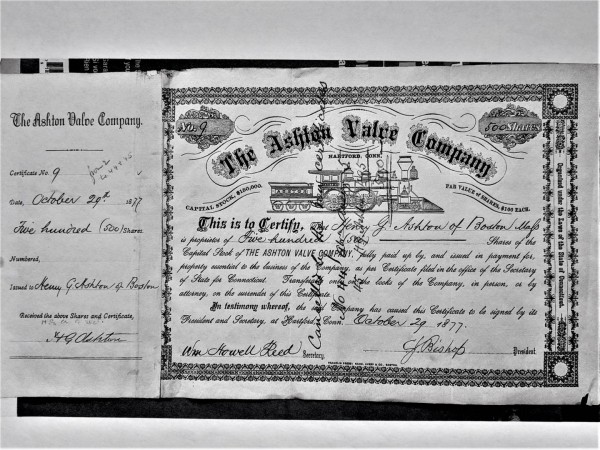 The Ashton Valve Company.
Certificate No. 9
Date, October 29th 1877
Five hundred (500) Shares
Numbered,
Issued to Henry G. Ashton of Boston
Received the above Shares and Certificate,
H G Ashton
No. 9
500 Shares
The Ashton Valve Company
HARTFORD, CONN.
CAPITAL STOCK, $100,000.
PAR VALUE of SHARES, $100 EACH.
This is to Certify, Henry G. Ashton of Boston Mass
is proprietor of Five hundred Shares of the
Capital Stock of THE ASHTON VALVE COMPANY, fully paid up by, and issued in payment for,
property essential to the business of the Company, as per Certificate filed in the office of the Secretary
of State for Connecticut. Transferable only on the books of the Company, in person, or by
attorney, on the surrender of this Certificate.
In testimony whereof, the said Company has caused this Certificate to be signed by its
President and Secretary, at Hartford, Conn. October 29 1877.
Wm Howell Reed Secretary.
J. Bishop President.
Organized under the Laws of the State of Connecticut
Cancelled